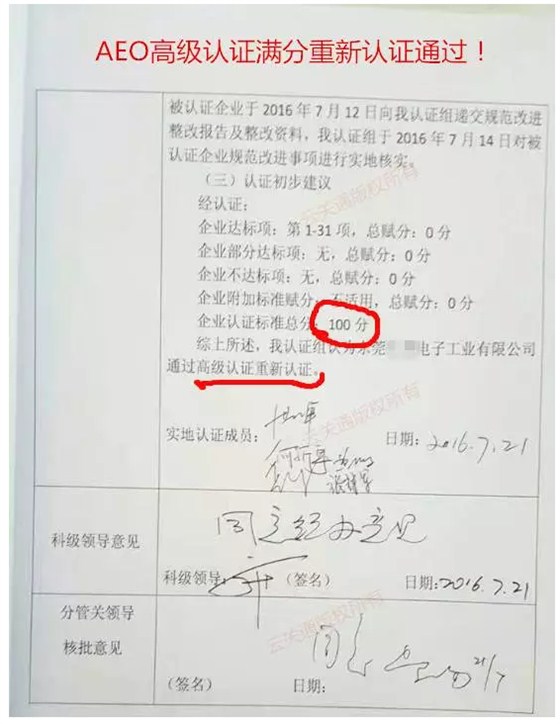 AEO高级认证满分重新认证通过！
被认证企业于 2016 年 7 月 12 日向我认证组递交规范改进
整改报告及整改资料，我认证组于 2016 年 7 月 14 日对被
认证企业规范改进事项进行实地核实。
（三）认证初步建议
经认证：
企业达标项：第 1-31 项，总赋分：0 分
企业部分达标项：无，总赋分：0 分
企业不达标项：无，总赋分：0 分
企业附加标准赋分：不适用，总赋分：0 分
企业认证标准总分：100 分
综上所述，我认证组认为东莞 电子工业有限公司
通过高级认证重新认证。
云关通版权所有
实地认证成员：
日期：2016.7.21
云关通版权所有
科级领导意见
同意经办意见
科级领导：
（签名）
日期：2016.7.21
分管关领导
核批意见
云关通版权所有
同意
21/7
（签名）
日期：